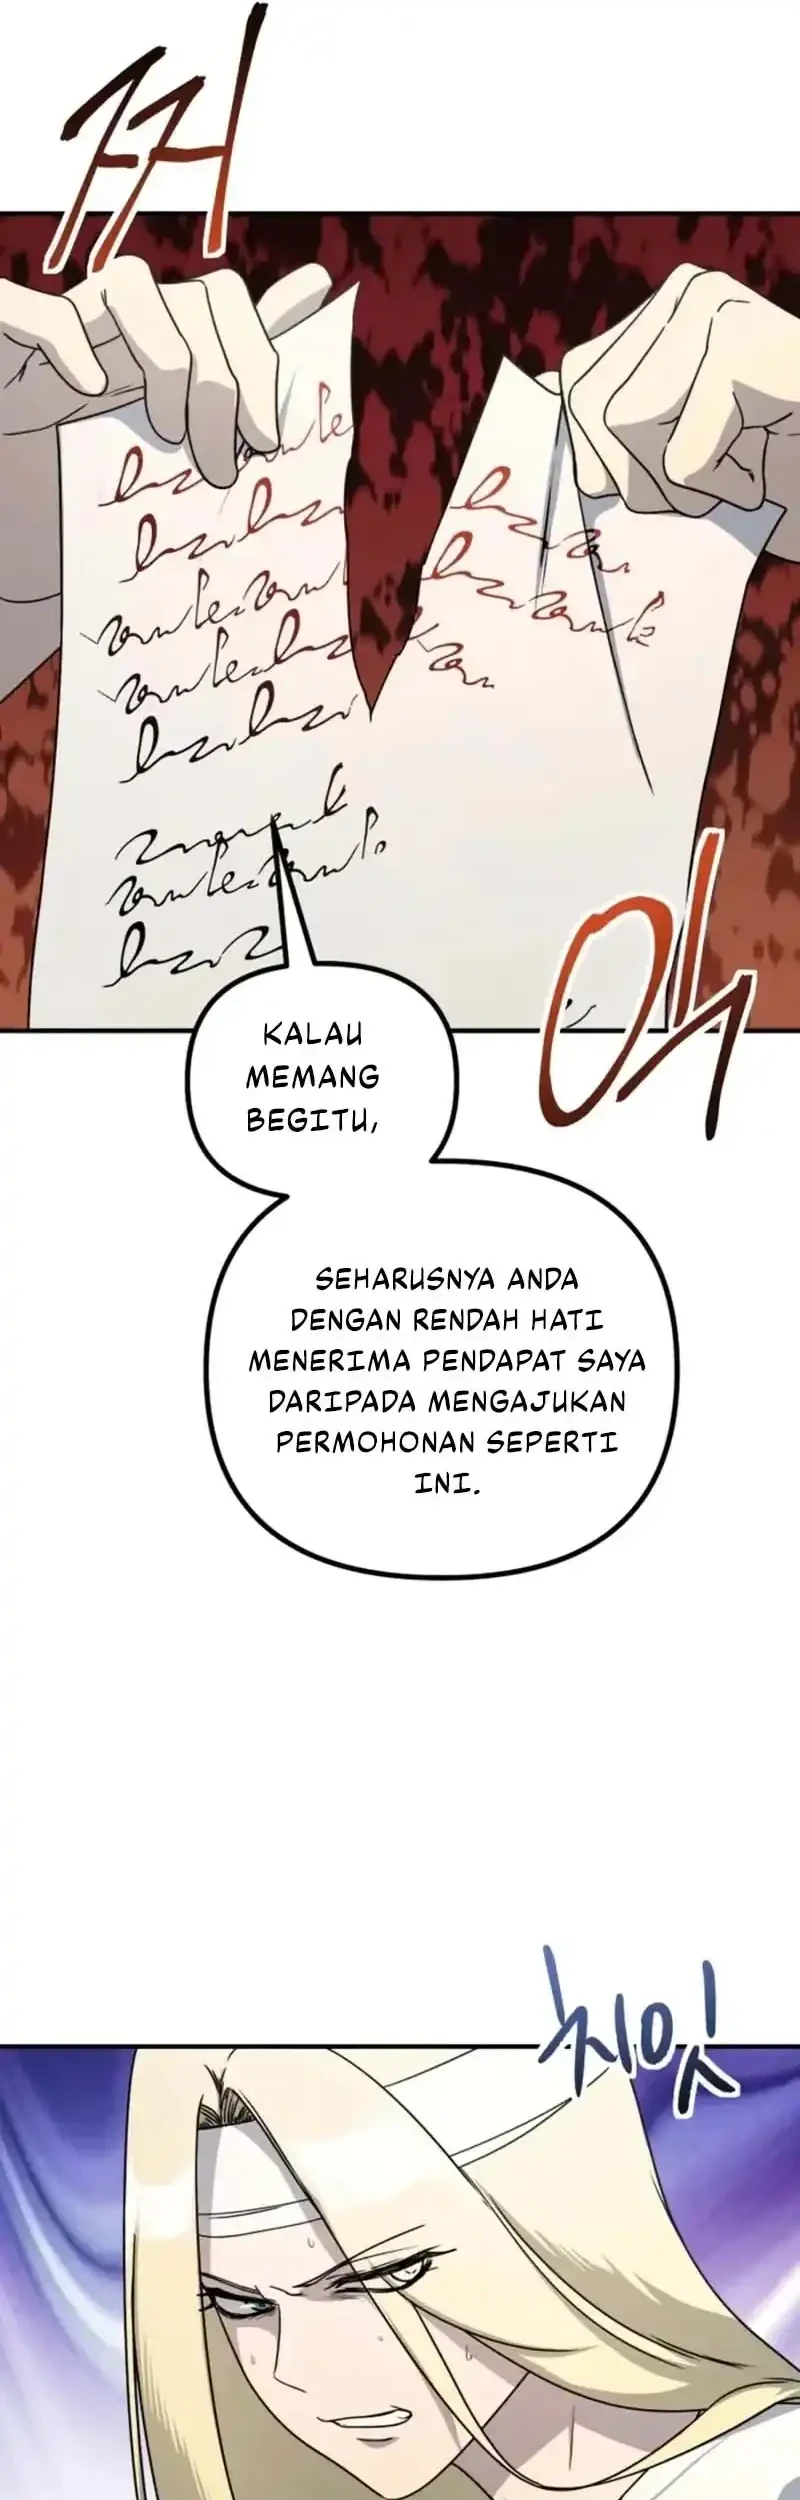 KALAU
MEMANG
BEGITU,
SEHARUSNYA ANDA
DENGAN RENDAH HATI
MENERIMA PENDAPAT SAYA
DARIPADA MENGAJUKAN
PERMOHONAN SEPERTI
INI.